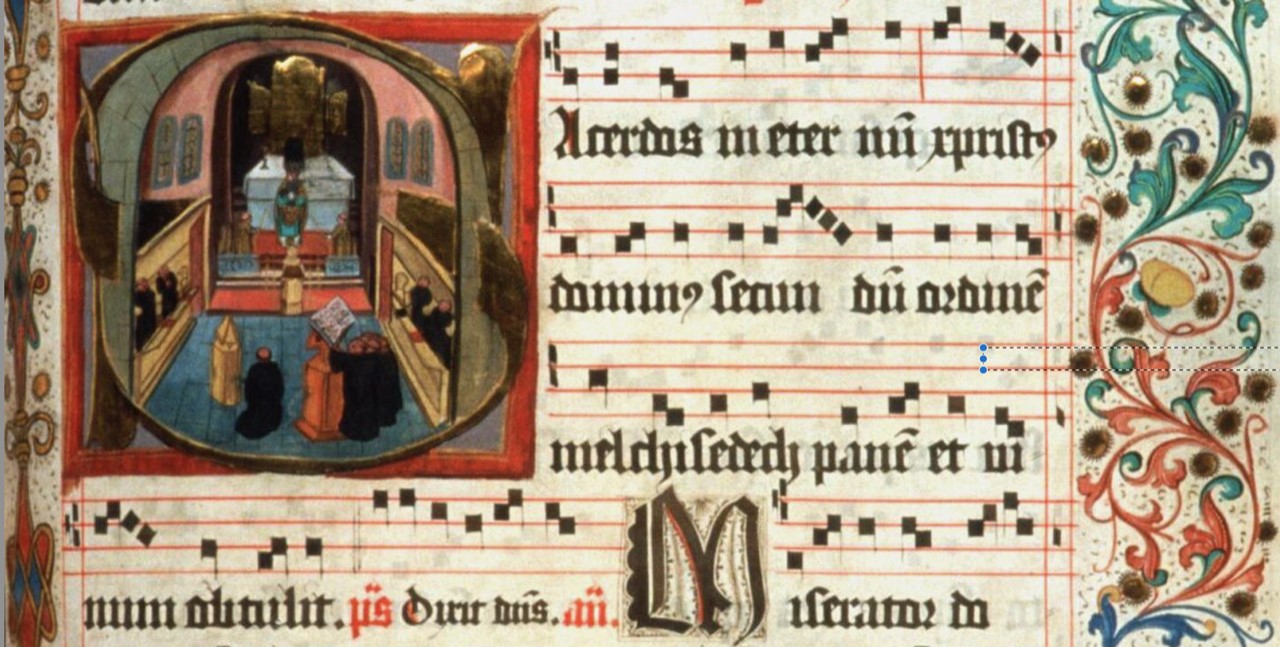 Acerdos in eter nū xpristꝰ
dominꝰ secun dū ordinē
melchisedech panē et vi
num obtulit. p̄s Dixit dn̄s. an̄. M iserator do